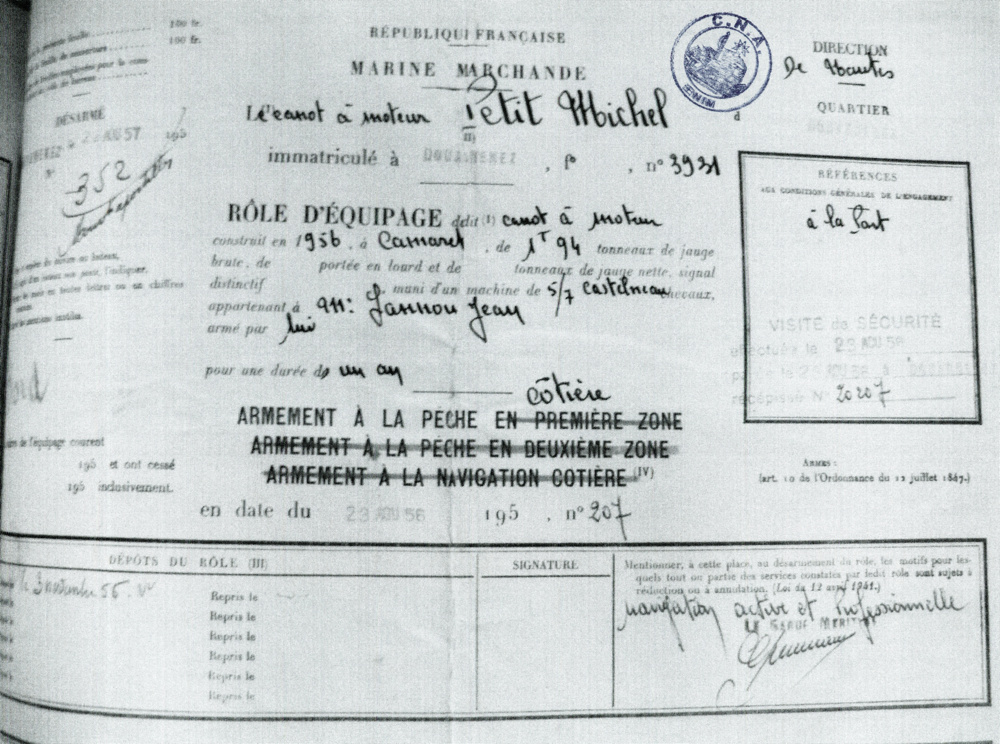 100 fr.
100 fr.
RÉPUBLIQUE FRANÇAISE
MARINE MARCHANDE
C.N.A.
ENIM
DIRECTION
De Nantes
QUARTIER
d
Le canot à moteur Petit Michel
(II)
immatriculé à DOUARNENEZ , fo , n° 3931
DÉSARMÉ
AOU 57 195
N° 352
RÔLE D'ÉQUIPAGE dudit (1) canot à moteur
construit en 1956 , à Camaret , de 1T 94 tonneaux de jauge
brute, de portée en lourd et de tonneaux de jauge nette, signal
distinctif , muni d'un machine de 5/7 Castelneau chevaux,
appartenant à Mr: Jannou Jean
armé par lui
pour une durée de un an
côtière
ARMEMENT À LA PÊCHE EN PREMIÈRE ZONE
ARMEMENT À LA PÊCHE EN DEUXIÈME ZONE
ARMEMENT À LA NAVIGATION COTIÈRE (IV)
en date du 23 AOU 56 195 , n° 207
RÉFÉRENCES
AUX CONDITIONS GÉNÉRALES DE L'ENGAGEMENT
à la Part
VISITE de SÉCURITÉ
effectuée le 23 AOU 56
récépissé N° 20207
ARMES :
(art. 10 de l'Ordonnance du 12 juillet 1847.)
de l'équipage courent
195 et ont cessé
195 inclusivement.
DÉPÔTS DU RÔLE (III)
SIGNATURE
Repris le
Repris le
Repris le
Repris le
Repris le
Repris le
Mentionner, à cette place, au désarmement du rôle, les motifs pour les-
quels tout ou partie des services constatés par ledit rôle sont sujets à
réduction ou à annulation. (Loi du 12 avril 1941.)
navigation active et Professionnelle
LE GARDE MARITIME